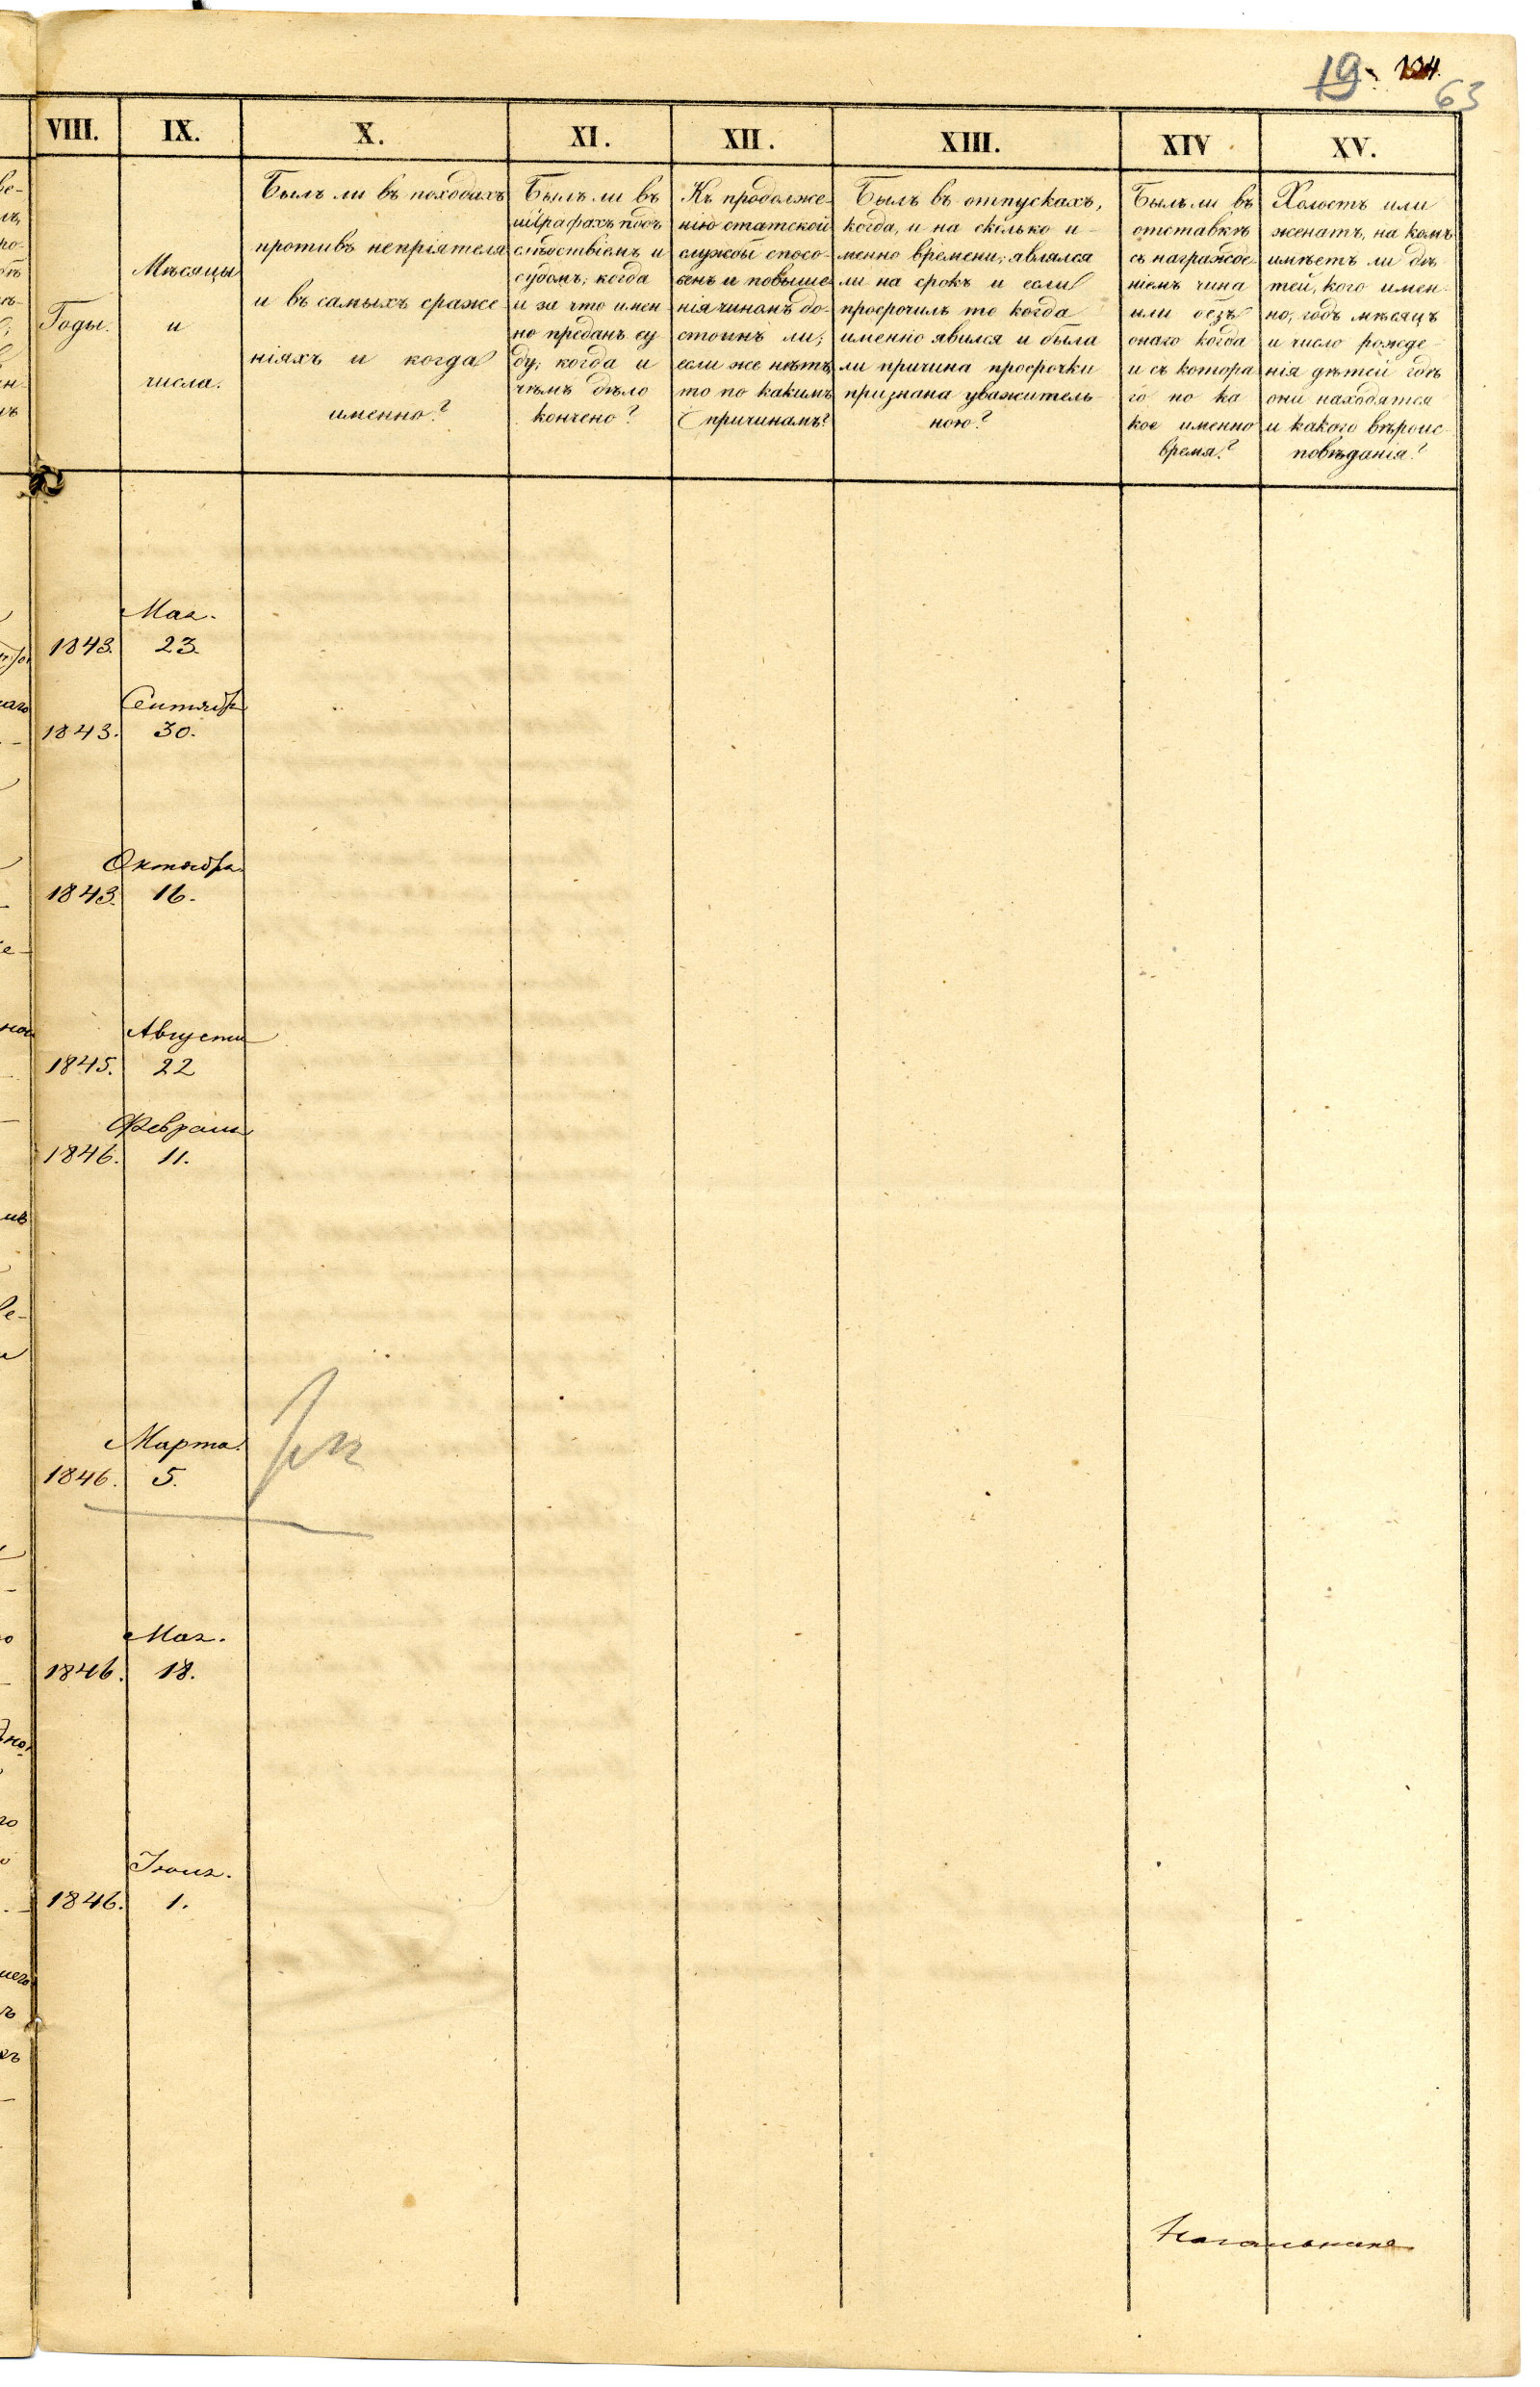 19. 134.
63
VIII. IX. X. XI. XII. XIII. XIV XV.
Годы.
Мѣсяцы
и
числа.
Былъ ли въ походахъ
противъ непріятеля
и въ самыхъ сраже
ніяхъ и когда
именно?
Былъ ли въ
штрафахъ подъ
слѣдствіемъ и
судомъ; когда
и за что имен
но преданъ су
ду; когда и
чѣмъ дѣло
кончено?
Къ продолже-
нію статской
службы спосо-
бенъ и повыше
нія чиномъ до-
стоинъ ли;
если же нѣтъ,
то по какимъ
причинамъ?
Былъ въ отпускахъ,
когда, и на сколько и-
менно времени; являлся
ли на срокъ и если
просрочилъ то когда
именно явился и была
ли причина просрочки
признана уважитель-
ною?
Былъ ли въ
отставкѣ
съ награжде-
ніемъ чина
или безъ
онаго когда
и съ котора
го по ка
кое именно
время?
Холостъ или
женатъ, на комъ
имѣетъ ли дѣ-
тей, кого имен-
но; годъ мѣсяцъ
и число рожде-
нія дѣтей гдѣ
они находятся
и какого вѣроис-
повѣданія?
Мая.
1843. 23.
Сентября
1843. 30.
Октября
1843. 16.
Августа
1845. 22
Февраля
1846. 11.
Марта.
1846. 5.
Мая.
1846. 18.
Іюня.
1846. 1.
Начальника